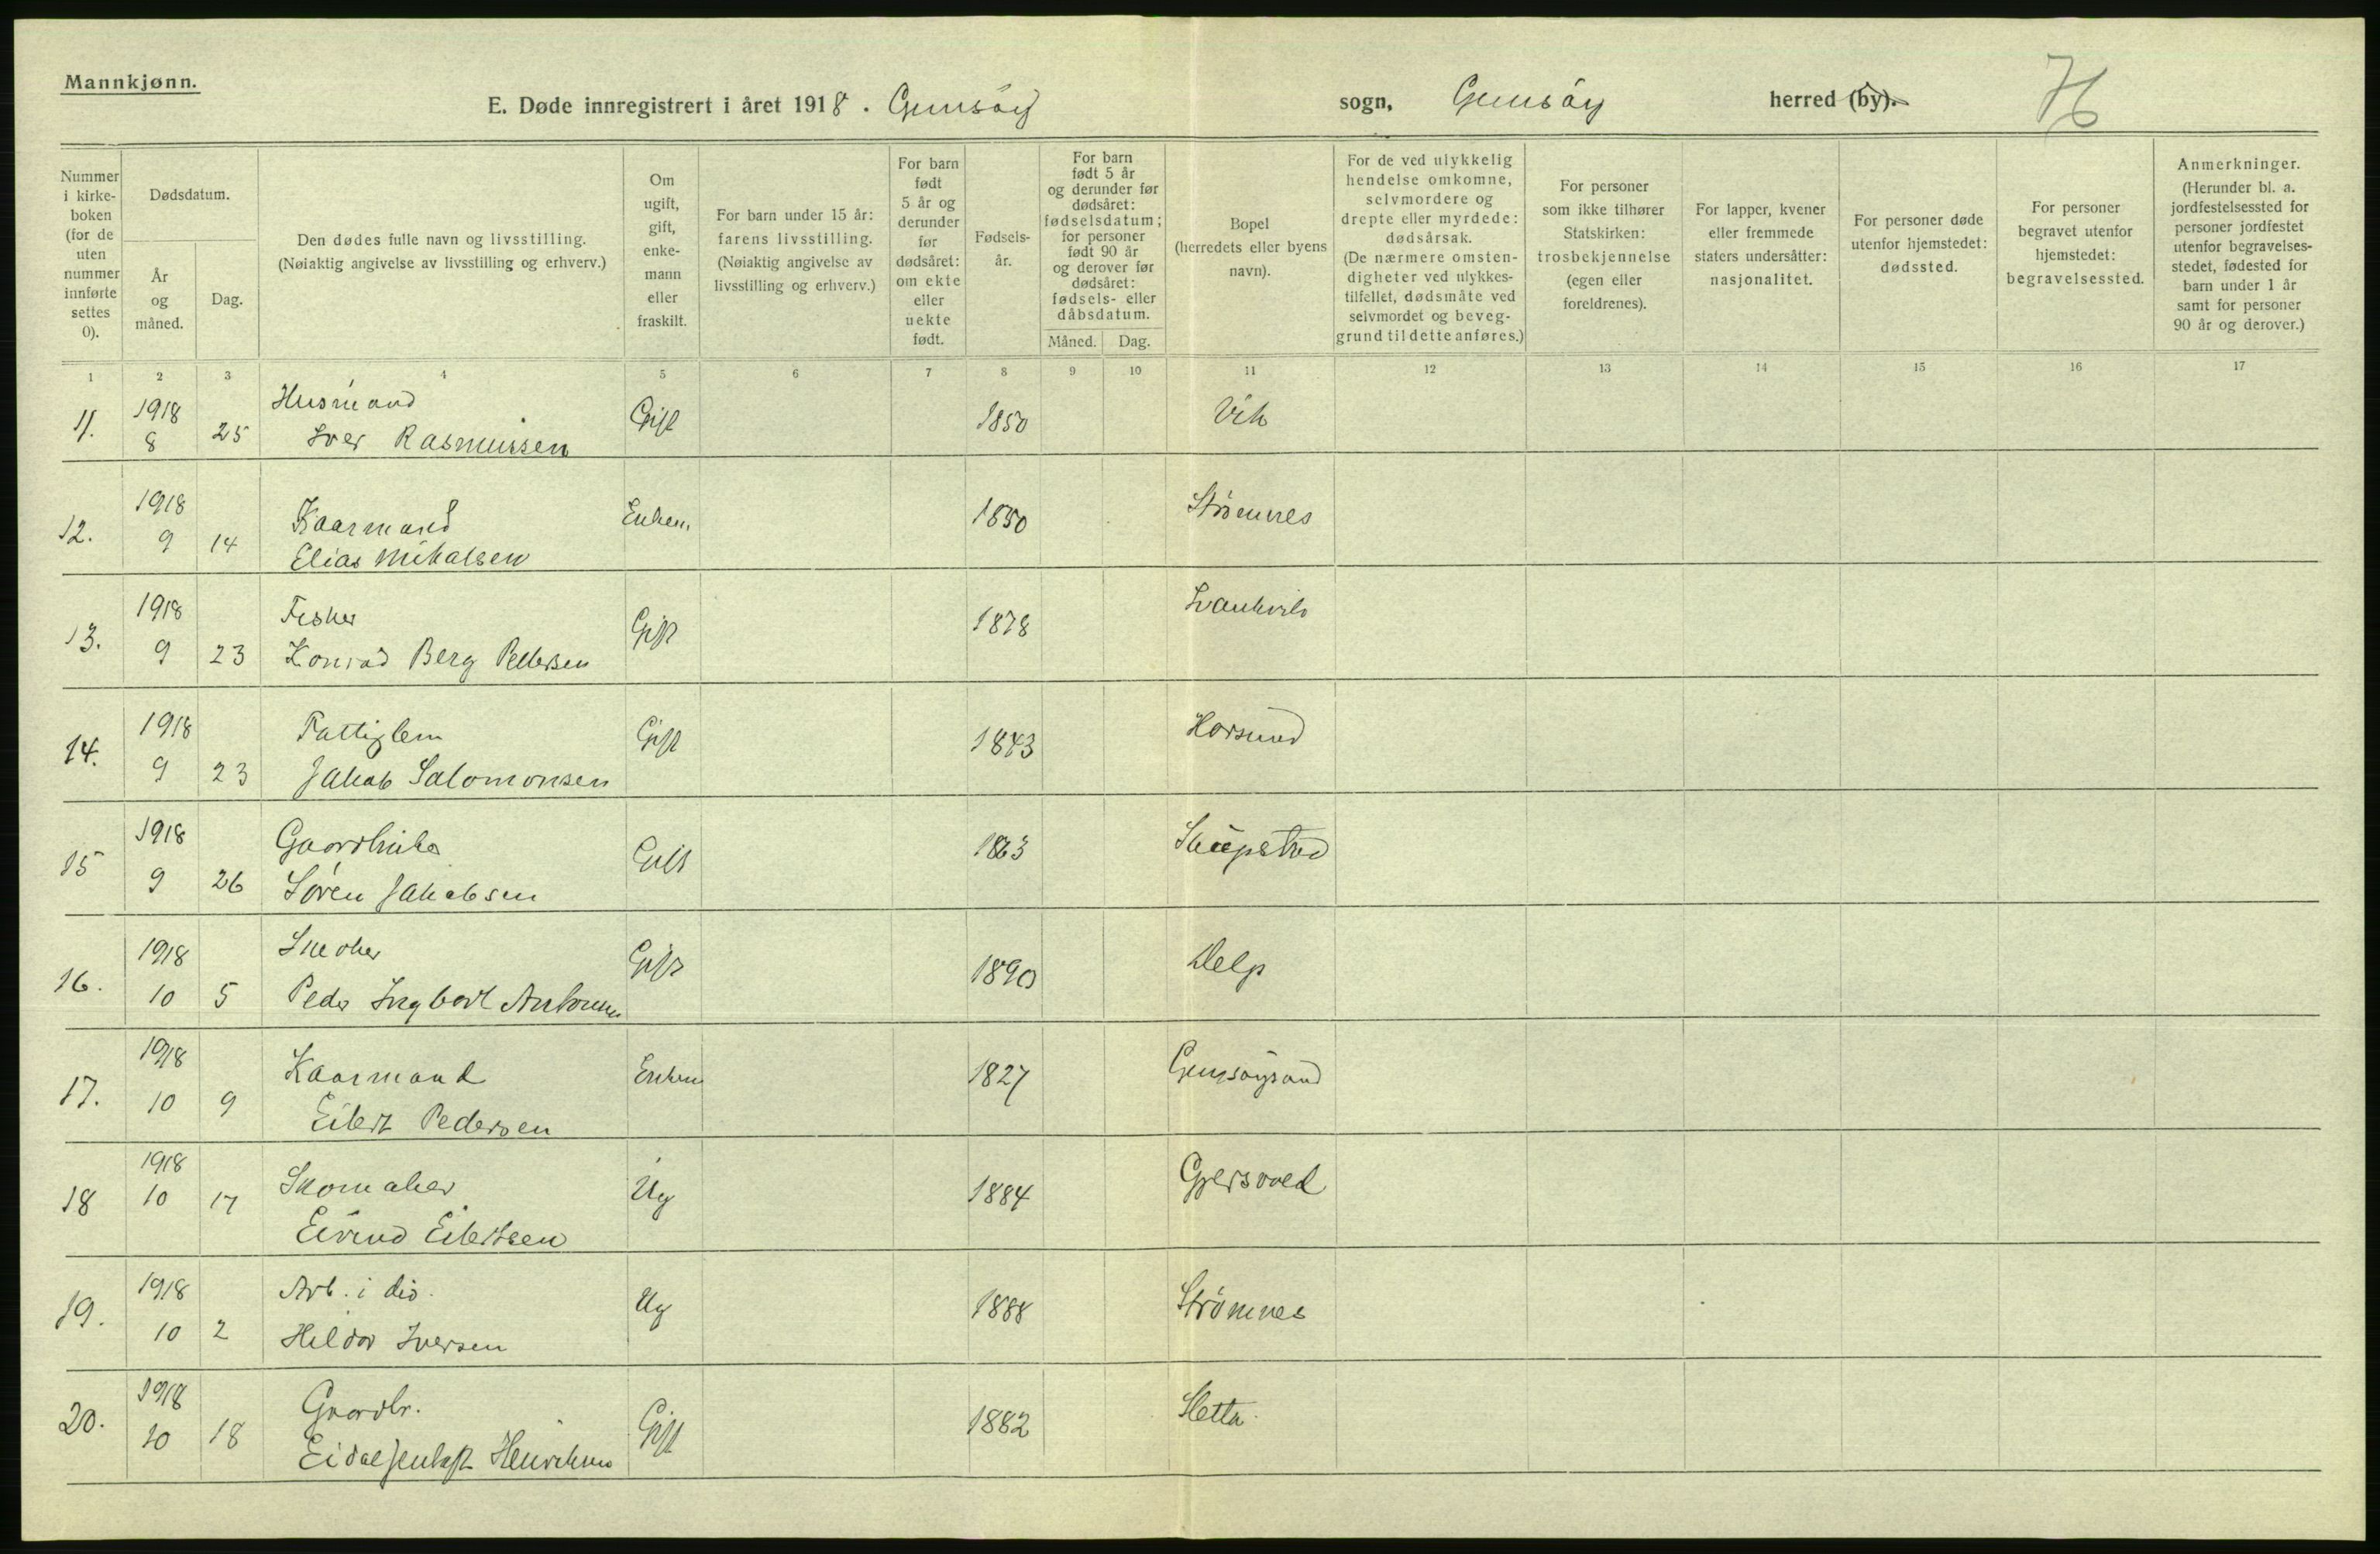 Mannkjønn.
E. Døde innregistrert i året 1918. Gimsöy sogn, Gimsöy herred (by).
H
Nummer i kirkeboken (for de uten nummer innførte settes 0).
Dødsdatum.
År og måned.
Dag.
Den dødes fulle navn og livsstilling.
(Nøiaktig angivelse av livsstilling og erhverv.)
Om ugift, gift, enkemann eller fraskilt.
For barn under 15 år: farens livsstilling.
(Nøiaktig angivelse av livsstilling og erhverv.)
For barn født 5 år og derunder før dødsåret: om ekte eller uekte født.
Fødselsår.
For barn født 5 år og derunder før dødsåret: fødselsdatum; for personer født 90 år og derover før dødsåret: fødsels- eller dåbsdatum.
Måned. Dag.
Bopel (herredets eller byens navn).
For de ved ulykkelig hendelse omkomne, selvmordere og drepte eller myrdede: dødsårsak.
(De nærmere omstendigheter ved ulykkestilfellet, dødsmåte ved selvmordet og beveggrund til dette anføres.)
For personer som ikke tilhører Statskirken: trosbekjennelse (egen eller foreldrenes).
For lapper, kvener eller fremmede staters undersåtter: nasjonalitet.
For personer døde utenfor hjemstedet: dødssted.
For personer begravet utenfor hjemstedet: begravelsessted.
Anmerkninger.
(Herunder bl. a. jordfestelsessted for personer jordfestet utenfor begravelsesstedet, fødested for barn under 1 år samt for personer 90 år og derover.)
1 2 3 4 5 6 7 8 9 10 11 12 13 14 15 16 17
11. 1918 8 25 Husmand
Iver Rasmussen Gift 1850 Vik
12. 1918 9 14 Kaarmand
Elias Mikalsen Enkem. 1850 Strömnes
13. 1918 9 23 Fisker
Konrad Berg Pettersen Gift 1878
14. 1918 9 23 Fattiglem
Jakob Salomonsen Gift 1843 Horsund
15 1918 9 26 Gaardbruker
Sören Jakobsen Gift 1863
16. 1918 10 5 Snedker
Peder Ingbart Antonsen Gift 1890 Delp
17. 1918 10 9 Kaarmand
Eilert Pedersen Enkem 1827 Gimsöysand
18 1918 10 17 Skomaker
Eivind Eilertsen Ug 1884 Gjersvold
19. 1918 10 2 Arb. i dio.
Hildor Iversen Ug 1888 Strömnes
20. 1918 10 18 Gaardbr.
Henriksen Gift 1882 Sletta